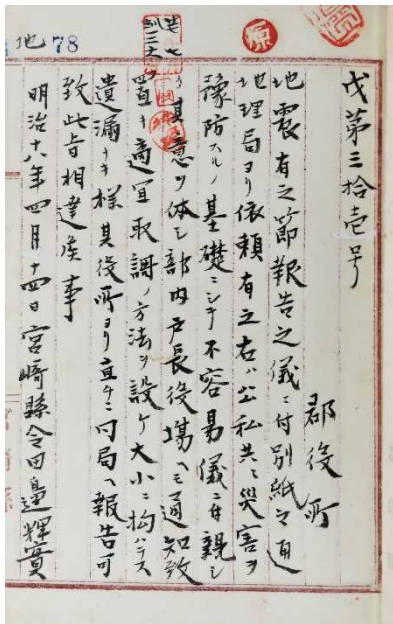 地 78
戊第三拾壱号
郡役所
地震有之節報告之儀ニ付別紙之通
地理局ヨリ依頼有之右ハ公私共ニ災害ヲ
豫防スルノ基礎ニシテ不容易儀ニ付親シ
ク其意ヲ体シ部内戸長役場ヘモ通知致
置キ適宜取調ノ方法ヲ設ケ大小ニ拘ハラス
遺漏ナキ様其役所ヨリ直チニ同局ヘ報告可
致此旨相達候事
明治十八年四月十四日宮崎縣令田邊輝實